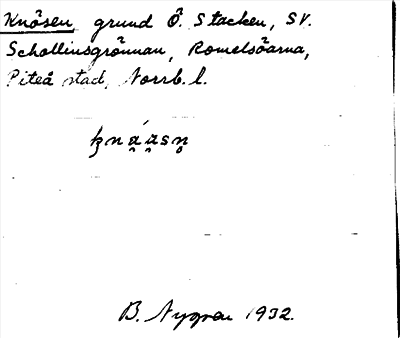 Knösen grund Ö. Stacken, SV.
Schollinsgrönnan, Romelsöarna,
Piteå stad, Norrb. l.
B. Nygren 1932.